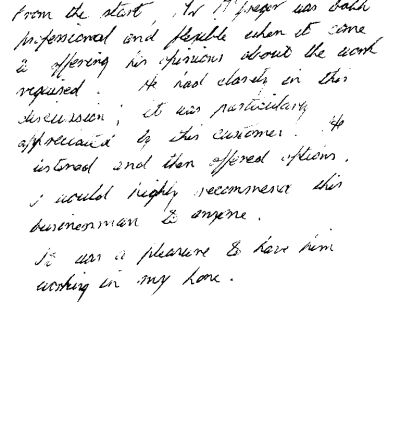 From the start, Mr McGregor was both
professional and flexible when it came
to offering his opinions about the work
required. He had clarity in this
discussion; it was particularly
appreciated by this customer. He
listened and then offered options.
I would highly recommend this
businessman to anyone.
It was a pleasure to have him
working in my home.